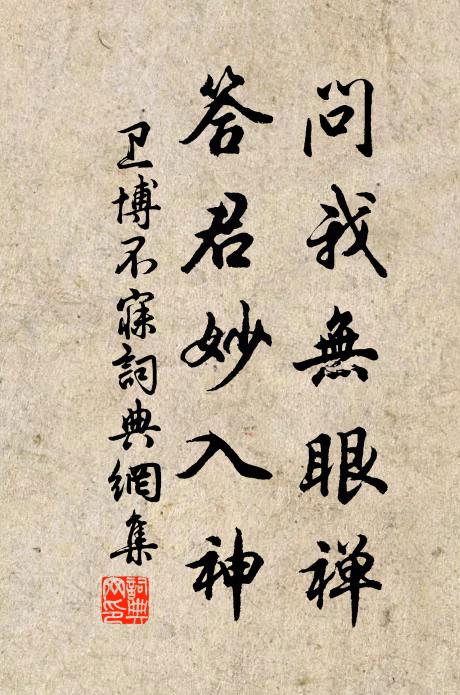 問我無眼禅
答君妙入神
卫博不寐詞典網集
詞典网印